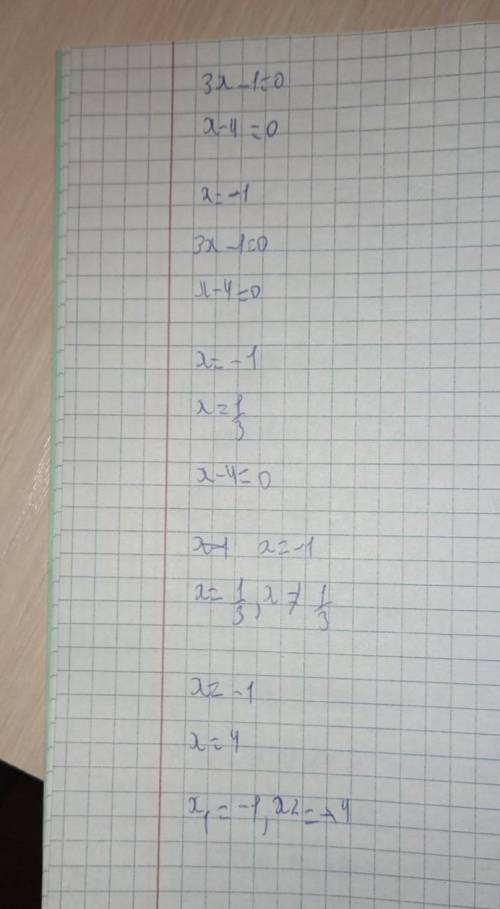 3x-1=0
x-4=0
x=-1
3x-1=0
x-4=0
x=-1
x=1/3
x-4=0
x=-1
x=1/3, x≠1/3
x=-1
x=4
x₁=-1, x2=